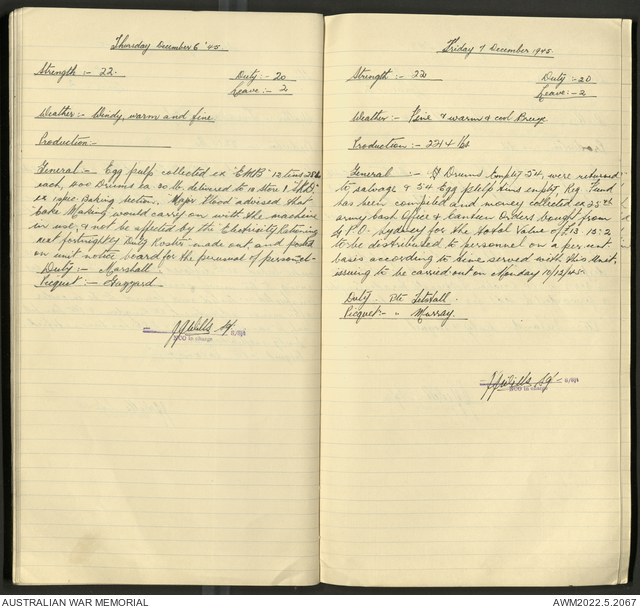 Thursday December 6 '45
Strength :- 22. Duty :- 20
Leave :- 2
Weather :- Windy, warm and fine.
Production :-
General :- Egg pulp collected ex "EMB" 12 tins 28 lb
each, 1000 Drums ea. 30 lb. delivered to 10 Store 1
ex spec. Baking Section. Major Flood advised that
Cake Making would carry on with the machine
in use, & not be affected by the Electricity Rationing
next fortnightly Duty Roster made out, and posted
on unit notice board for the perusal of personnel-
Duty :- Marshall.
Picquet :- Gaggard.
J J Wills Sgt
NCO in charge
Friday 7 December 1945.
Strength :- 22 Duty :- 20
Leave :- 2
Weather :- Fine & warm & cool Breeze.
Production :- 2 H 4
General :- Drums Empty 54, were returned
to salvage & 54 Egg pulp tins empty, Reg. Fund
has been compiled and money collected ex 25th
army Cash Office & Canteen Orders bought from
G.P.O. Sydney for the total Value of £13 15:2
to be distributed to personnel on a per unit
basis according to time served with this Unit.
issuing to be carried out on Monday 10/12/45.
Duty. Pte
Picquet :- " Murray.
J J Wills Sgt
NCO in charge
AUSTRALIAN WAR MEMORIAL AWM2022.5.2067